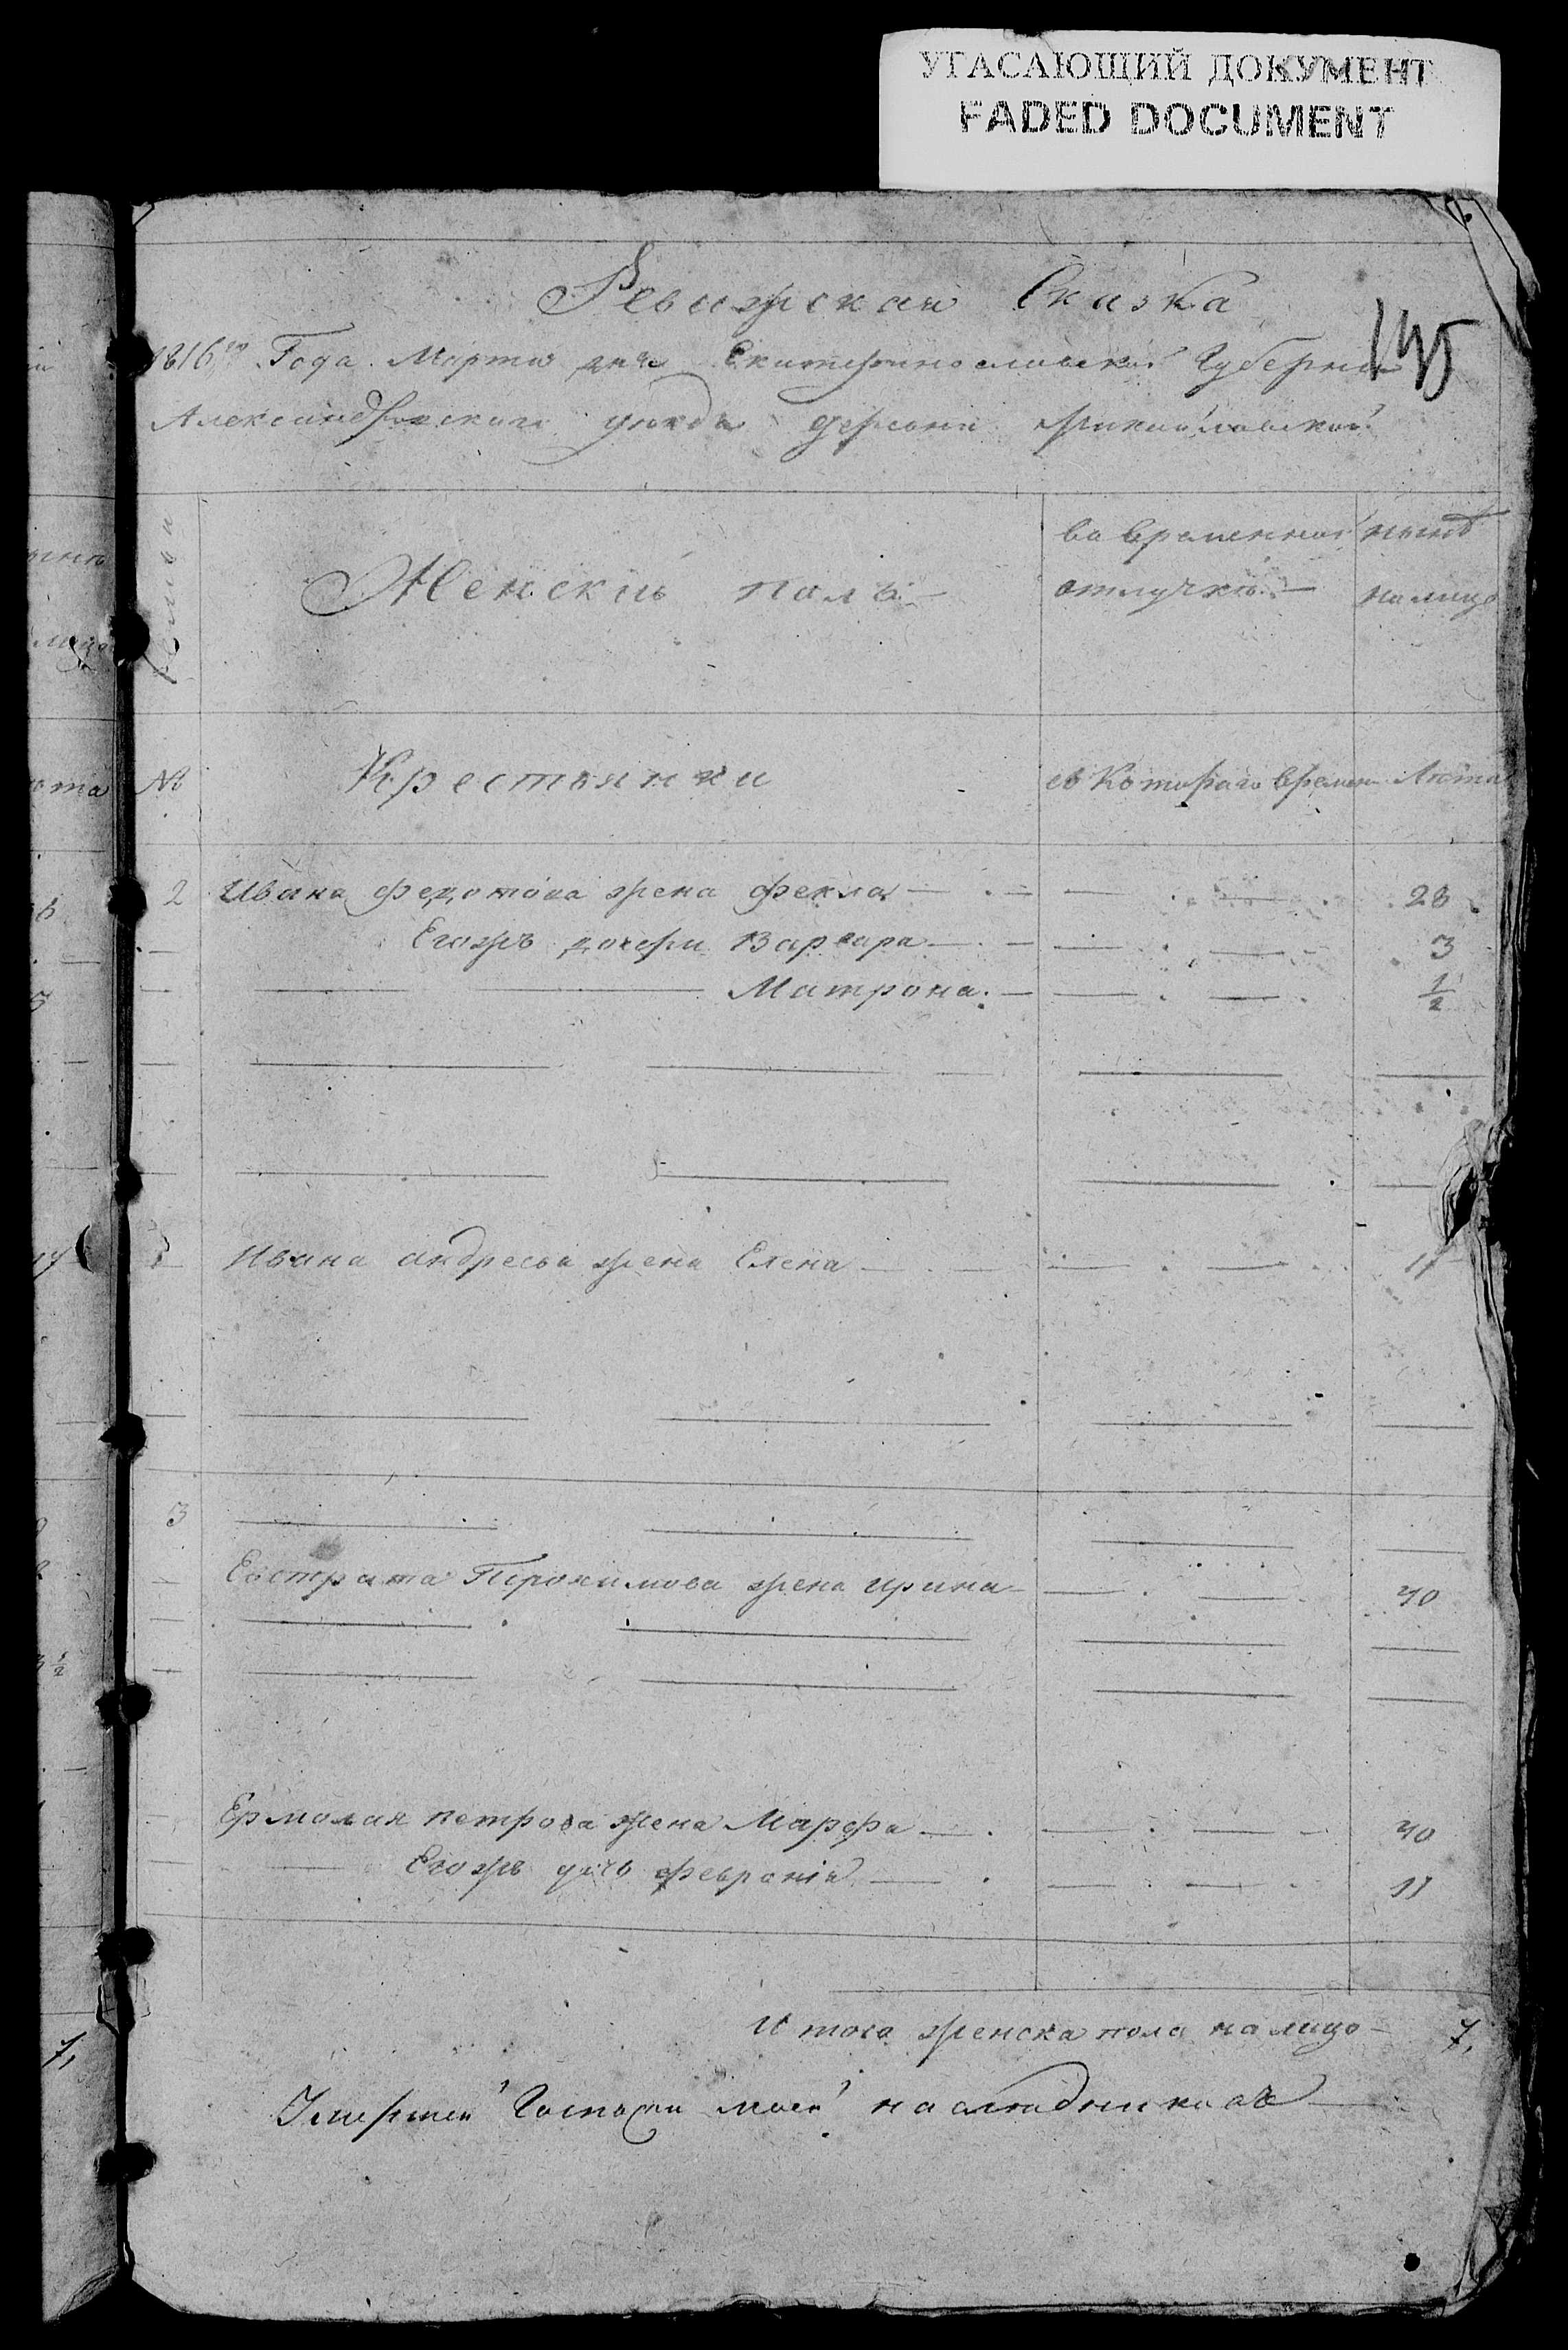 УГАСАЮЩИЙ ДОКУМЕНТ
FADED DOCUMENT
Ревижская Сказка
195
1816го Года Марта дня Екатеринославской Губернии
Александровского уезда деревни
семьи
Женский полъ
во временной отлучке
ныне на лицо
№ Крестьянки съ Котораго времени Лета
2 Ивана федотова жена фекла 28
Егожъ дочери Варвара 3
Матрона 1/2
Ивана андреева жена Елена 17
3
Евстрата жена ирина 40
Ермолая петрова жена Марфа 40
Егожъ дочь февронія 11
Итого женска пола на лицо 7,